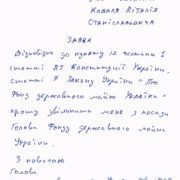 Коваля Віталія
Станіславовича
ЗАЯВА
Відповідно до пункту 12 частини 1
статті 85 Конституції України,
статті 7 Закону України "Про
Фонд державного майна України"
прошу звільнити мене з посади
Голови Фонду державного майна
України.
З повагою
Голови